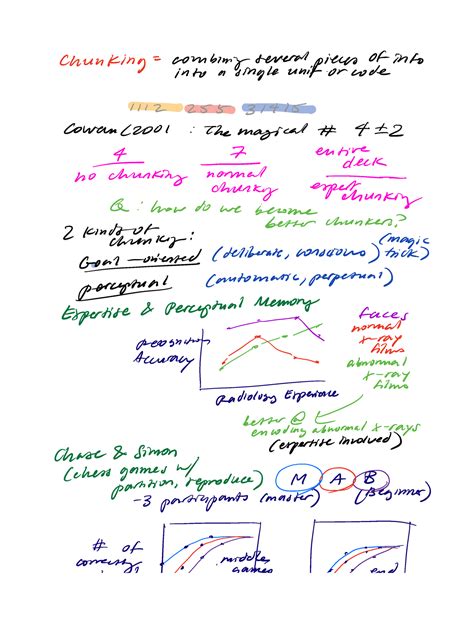 Chunking = combing several pieces of info
into a single unit or code
1112 255 31415
Cowan (2001 : The magical # 4±2
4 7 entire deck
no chunking normal chunky expert chunking
Q: how do we become
better chunkers?
2 kinds of
chunking:
Goal-oriented (deliberate, conscious) (magic trick)
perceptual (automatic, perpetual)
Expertise & Perceptual Memory
Recognition
Accuracy
faces
normal
x-ray
films
abnormal
x-ray
films
Radiology Experience
better @
encoding abnormal x-rays
(expertise involved)
Chase & Simon
(chess games w/
partition, reproduce) M A B
-3 participants (master) (Beginner)
# of
correctly
middle
games
end